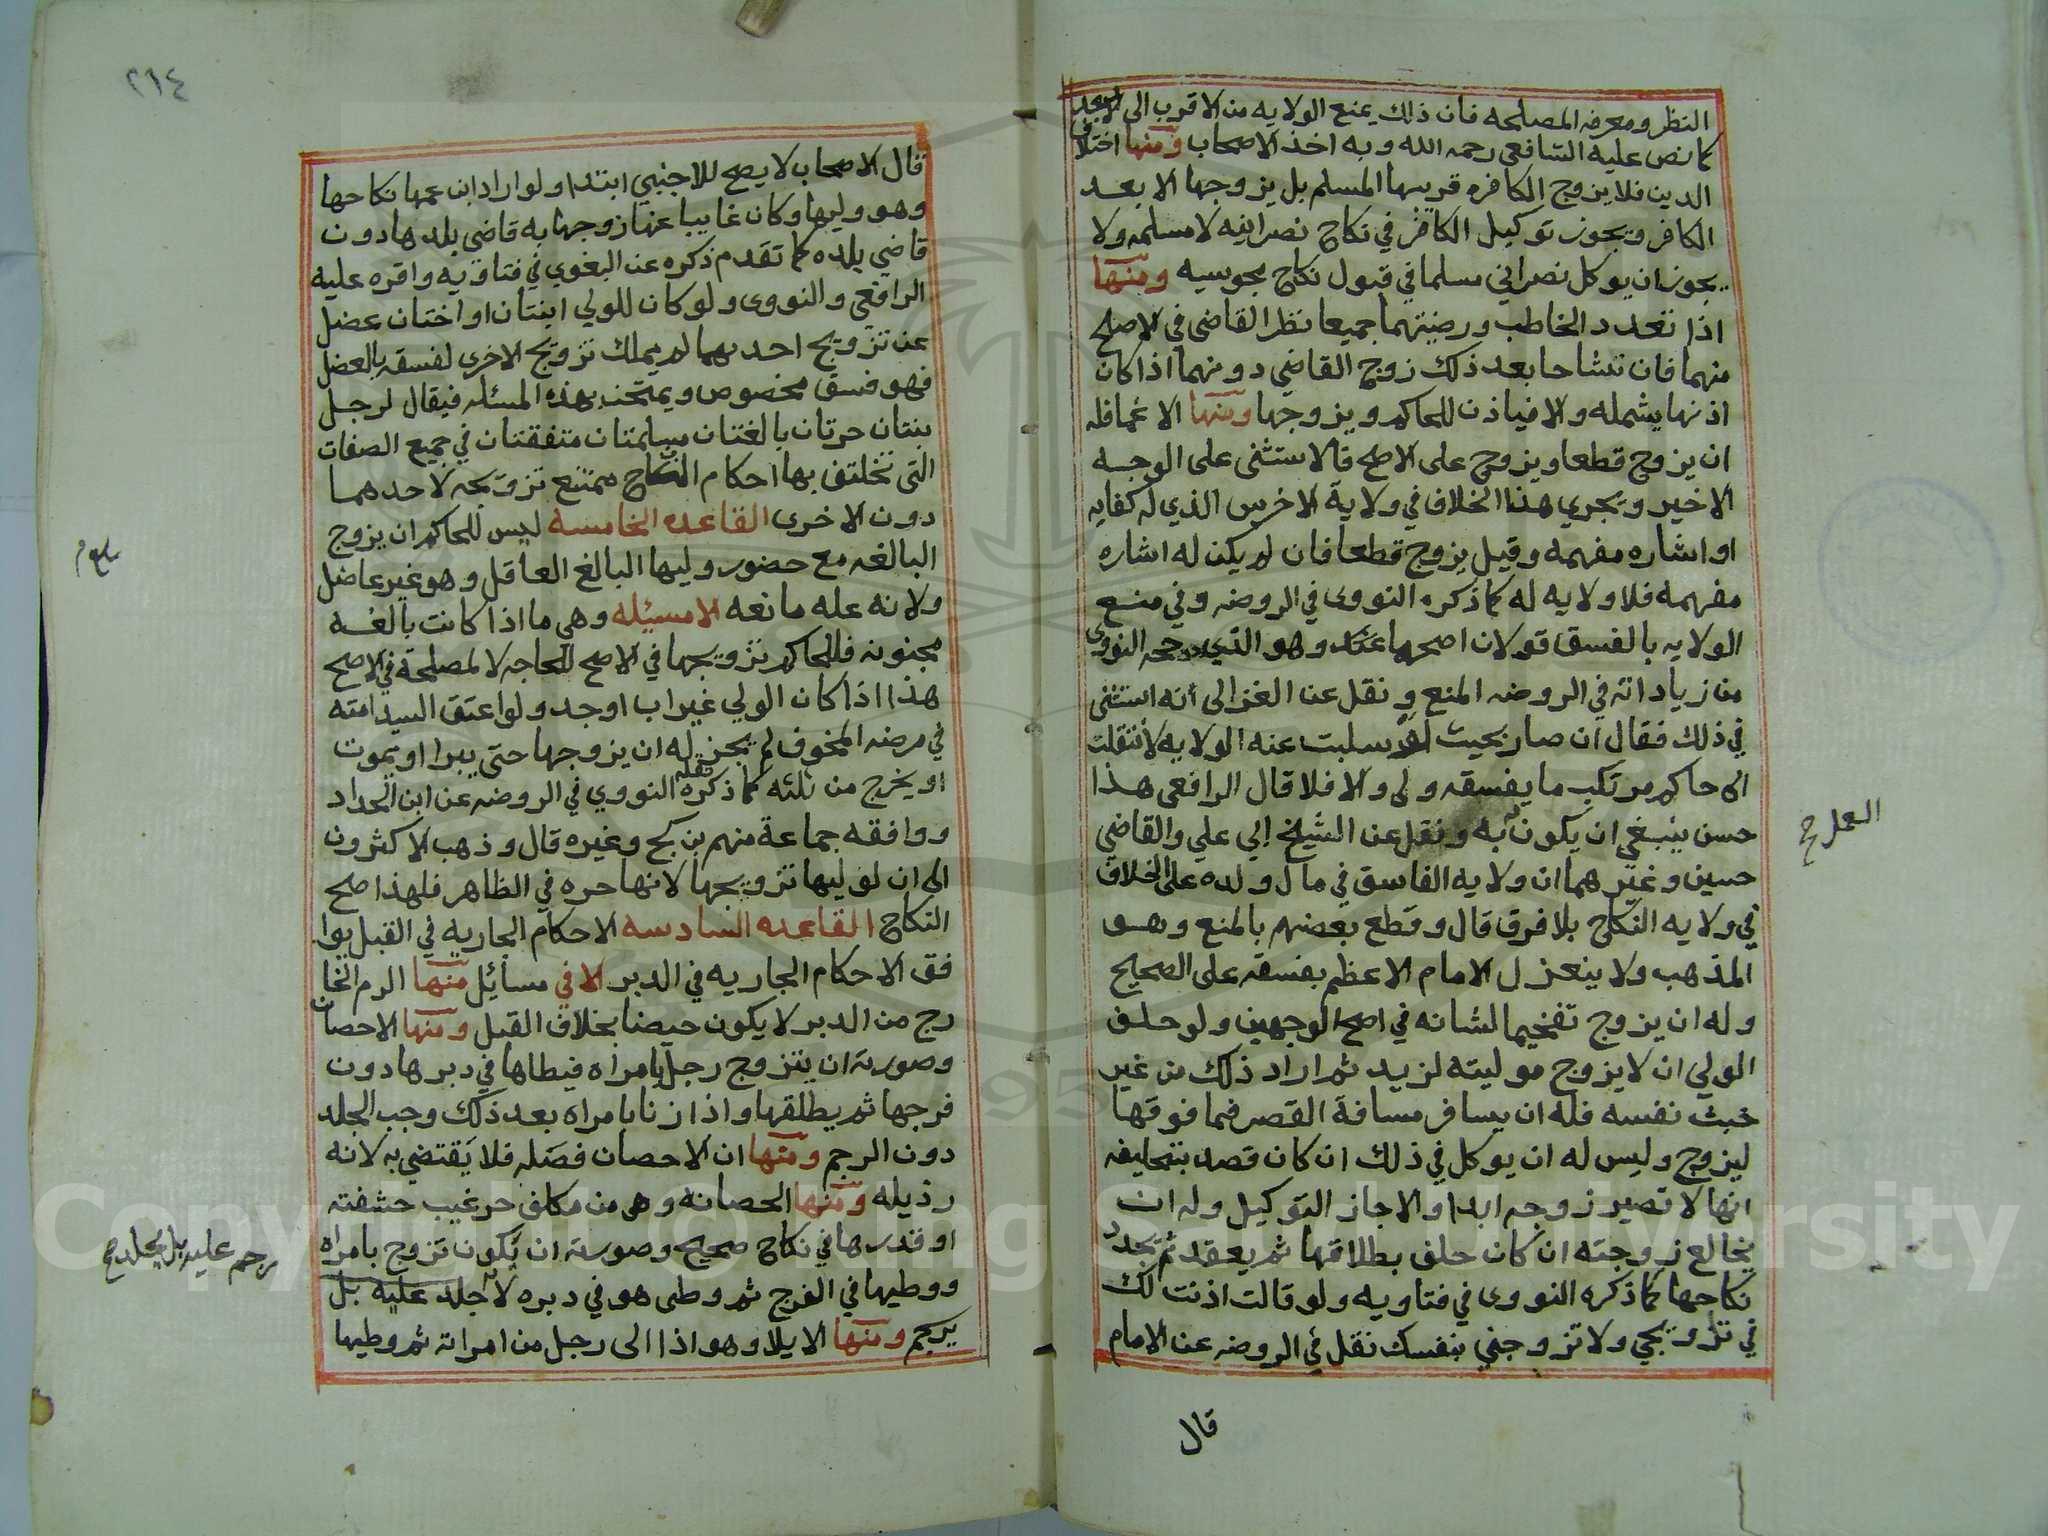 النظر ومعرفه المصلحه فان ذلك يمنع الولايه من الاقرب الى الابعد
كما نص عليه الشافعى رحمه الله وبه اخذ الاصحاب ومنها اختلاف
الدين فلا يزوج الكافره قريبها المسلم بل يزوجها الابعد
الكافر ويجوز توكيل الكافر في نكاح نصرانيه لا مسلمه ولا
يجوز ان يوكل نصراني مسلما في قبول نكاح مجوسيه ومنها
اذا تعدد الخاطب ورضيتهما جميعا نظر القاضى في الاصلح
منهما فان تشاحا بعد ذلك زوج القاضي دونهما اذا كان
اذنها يشمله والا فياذن للحاكم ويزوجها ومنها الاغما فله
ان يزوج قطعا ويزوج على الاصح فالاستثنى على الوجه
الاخير ويجري هذا الخلاف في ولاية الاخرس الذي له كفايه
او اشاره مفهمه وقيل يزوج قطعا فان لم يكن له اشاره
مفهمه فلا ولايه له كما ذكره النووى في الروضه وفي منع
الولايه بالفسق قولان اصحهما عنك وهو الذي رجحه النووى
من زياداته في الروضه المنع ونقل عن الغزالى انه استثنى
في ذلك فقال ان صار بحيث لو سلبت عنه الولايه لانتقلت
الى حاكم مرتكب ما يفسقه ولى والا فلا قال الرافعى هذا
حسن ينبغي ان يكون به ونقل عن الشيخ ابي علي والقاضي
حسين وغيرهما ان ولايه الفاسق في مال ولده على الخلاف
في ولايه النكاح بلا فرق قال وقطع بعضهم بالمنع وهو
المذهب ولا ينعزل الامام الاعظم بفسقه على الصحيح
وله ان يزوج تفخيما لشانه في اصح الوجهين ولو حلف
الولي ان لا يزوج موليته لزيد ثم اراد ذلك من غير
خبث نفسه فله ان يسافر مسافة القصر فما فوقها
ليزوج وليس له ان يوكل في ذلك ان كان قصد بتحليفه
انها لا تصير زوجه ابدا والا جاز التوكيل وله ان
يخالع زوجته ان كان حلف بطلاقها ثم يعقد ثم يجدد
نكاحها كما ذكره النووى في فتاويه ولو قالت اذنت لك
في تزويجي ولا تزوجني بنفسك نقل في الروضه عن الامام
قال
٢١٤
قال الاصحاب لا يصح للاجنبي ابتدا ولو اراد ابن عمها نكاحها
وهو وليها وكان غايبا عنها زوجها به قاضي بلدها دون
قاضي بلده كما تقدم ذكره عن البغوي في فتاويه واقره عليه
الرافعي والنووى ولو كان للولي ابنتان او اختان عضل
عن تزويج احديهما لم يملك تزويج الاخرى لفسقه بالعضل
فهو فسق مخصوص ويمتحن بهذه المسئله فيقال لرجل
بنتان حرتان بالغتان مسلمتان متفقتان في جميع الصفات
التى تختلف بها احكام النكاح ممتنع تزويجه لاحدهما
دون الاخرى القاعده الخامسه ليس للحاكم ان يزوج
البالغه مع حضور وليها البالغ العاقل وهو غير عاضل
ولا نه عله مانعه الا مسئله وهي ما اذا كانت بالغه
مجنونه فللحاكم تزويجها في الاصح للحاجه لا لمصلحة في الاصح
هذا اذا كان الولي غير اب او جد ولو اعتق السيد امته
في مرضه المخوف لم يجز له ان يزوجها حتى يبرا او يموت
او يخرج من ثلثه كما ذكره نقله النووي في الروضه عن ابن الحداد
ووافقه جماعة منهم بن كج وغيره قال وذهب الاكثرون
الى ان لوليها تزويجها لانها حره في الظاهر فلهذا صح
النكاح القاعده السادسه الاحكام الجاريه في القبل يوا
فق الاحكام الجاريه في الدبر الا في مسائل منها الدم الخا
رج من الدبر لا يكون حيضا بخلاف القبل ومنها الاحصان
وصورته ان يتزوج رجل بامراه فيطاها في دبرها دون
فرجها ثم يطلقها واذا زنا بامراه بعد ذلك وجب الجلد
دون الرجم ومنها ان الاحصان فضله فلا يقتضي به لانه
رذيله ومنها الحصانه وهى من مكلف حر غيب حشفته
او قدرها في نكاح صحيح وصورته ان يكون تزوج بامراه
ووطيها في الفرج ثم وطى هو في دبره لا جلد عليه بل
يرجم ومنها الايلا وهو اذا الى رجل من امراته ثم وطيها
رجم عليه بل يجلد صح
Copyright © King Saud University
1957